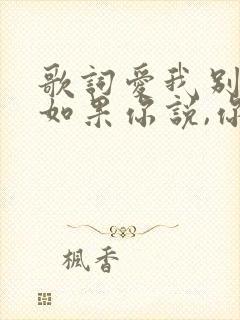 歌詞愛我別
如果你說,你
楓香